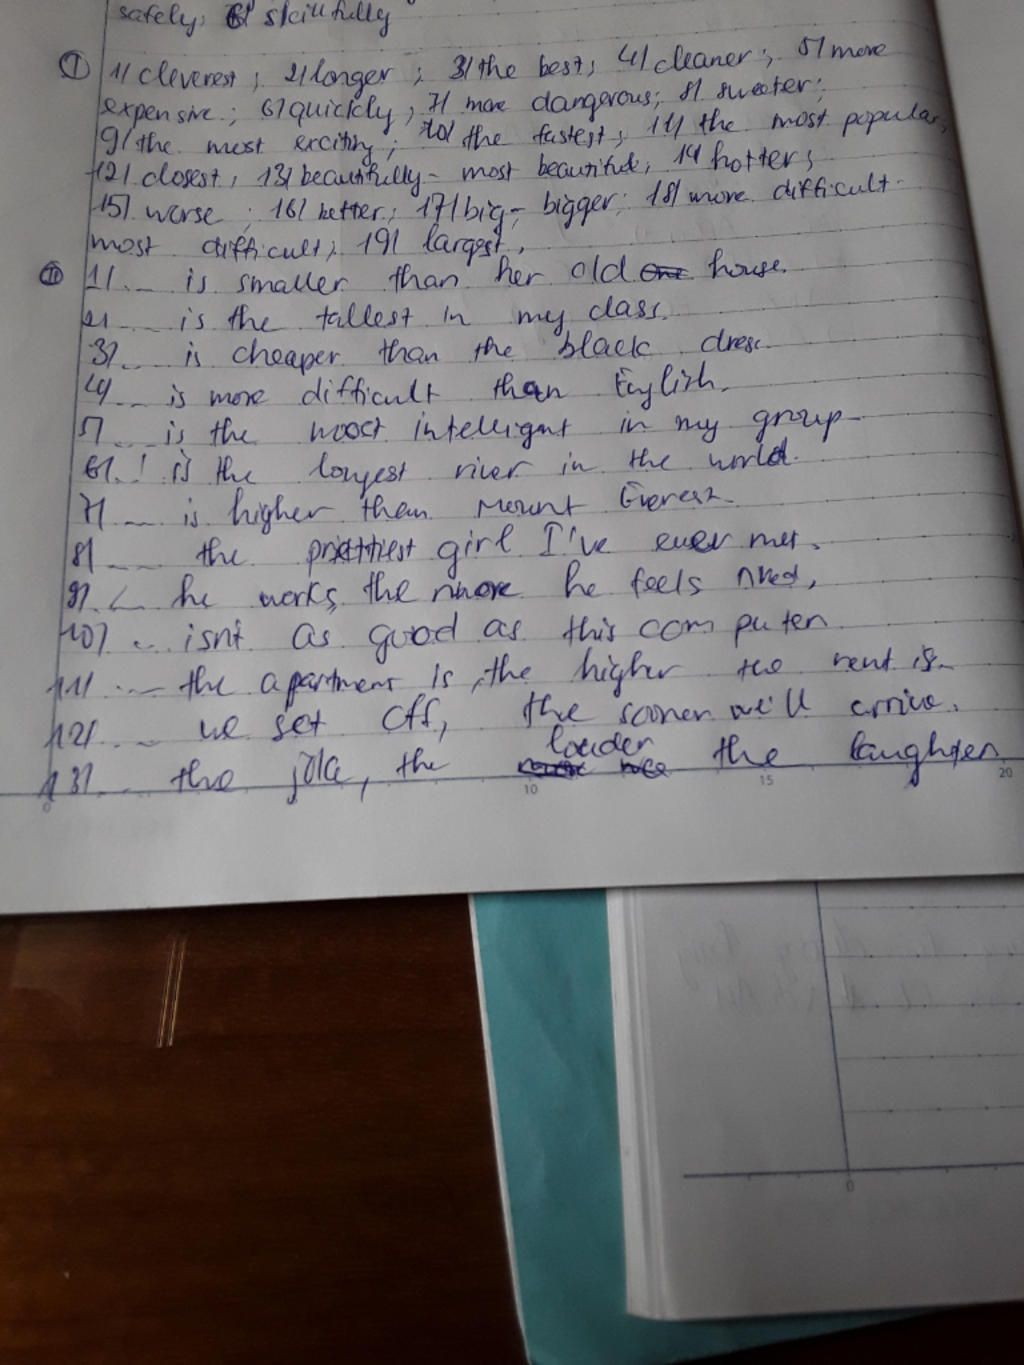 safely; 6/ skillfully
I 1/ cleverest; 2/ longer; 3/ the best; 4/ cleaner; 5/ more
expensive; 6/ quickly; 7/ more dangerous; 8/ sweeter;
9/ the most exciting; 10/ the fastest; 11/ the most popular,
12/ closest; 13/ beautifully - most beautiful; 14 hotter;
15/ worse; 16/ better; 17/ big - bigger; 18/ more difficult -
most difficult; 19/ largest.
II 1/... is smaller than her old house.
2/... is the tallest in my class.
3/... is cheaper than the black dress
4/... is more difficult than English.
5/... is the most intelligent in my group
6/... is the longest river in the world.
7/... is higher than Mount Everest.
8/... the prettiest girl I've ever met.
9/... he works, the more he feels
10/... isn't as good as this computer
11/... the apartment is, the higher the rent is
12/... we set off, the sooner we'll arrive.
13/... the joke, the louder the laughter
0 10 15 20
0